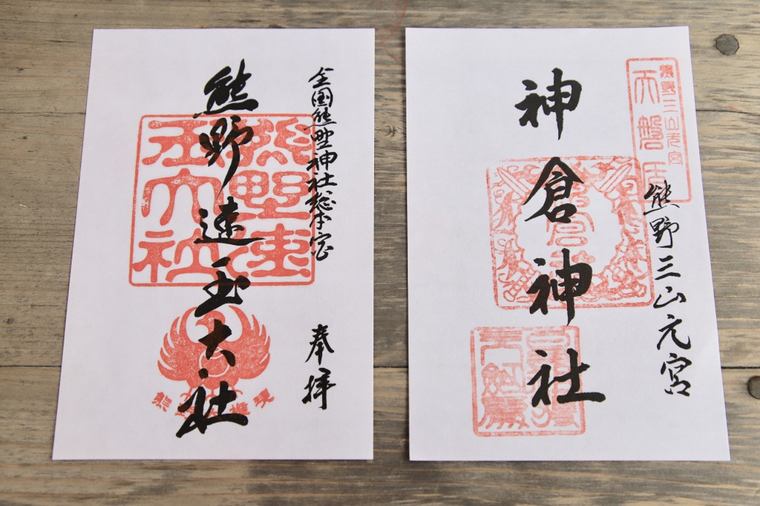 全国熊野神社総本宮
熊野速玉大社
奉拝
熊野速玉大社
熊野三山元宮
天磐盾
熊野三山元宮
神倉神社